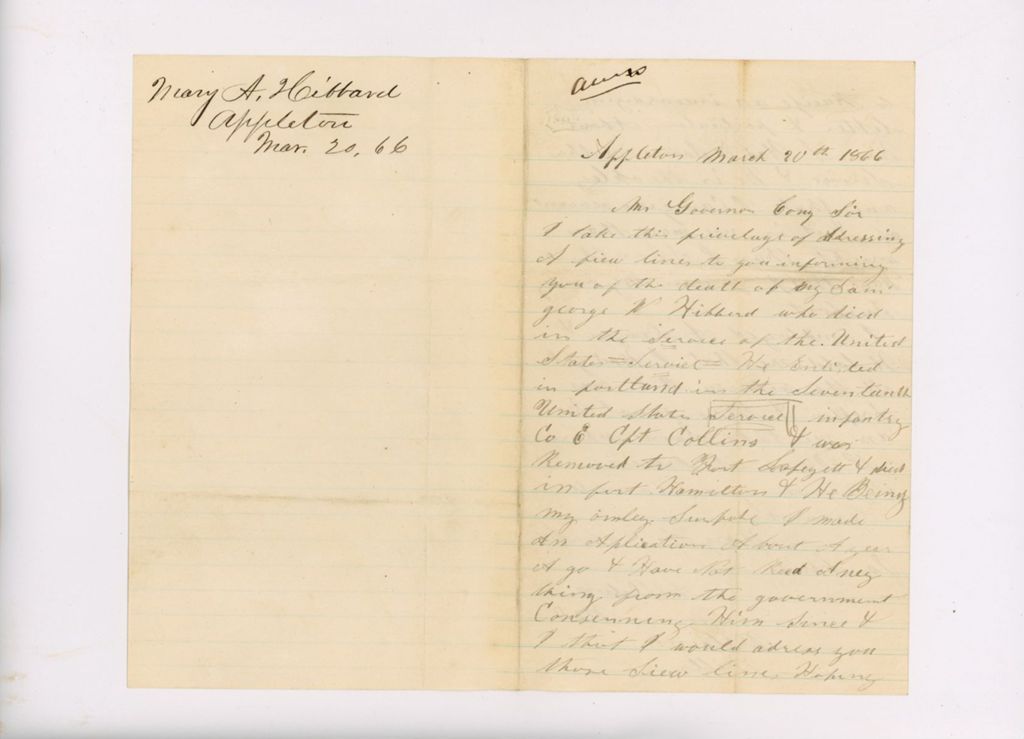 Mary A. Hibbard
Appleton
Mar. 20, 66
Appleton March 20th 1866
Mr Governor Cony Sir
I take this privelage of Adressing
A fiew lines to you informing
you of the death of my Son
george W Hibberd who died
in the Service of the United
States = Service = He Enlisted
in portland in the Seventeenth
United States Service infantry
Co E Cpt Collins & was
Removed to Fort Lafayett & died
in fort Hamilton & He Being
my onley Surpote I made
An Aplication About A year
A go & Have Not Recd Aney
thing from the government
Conserning Him Since &
I thot I would adress you
those fiew lines Hoping